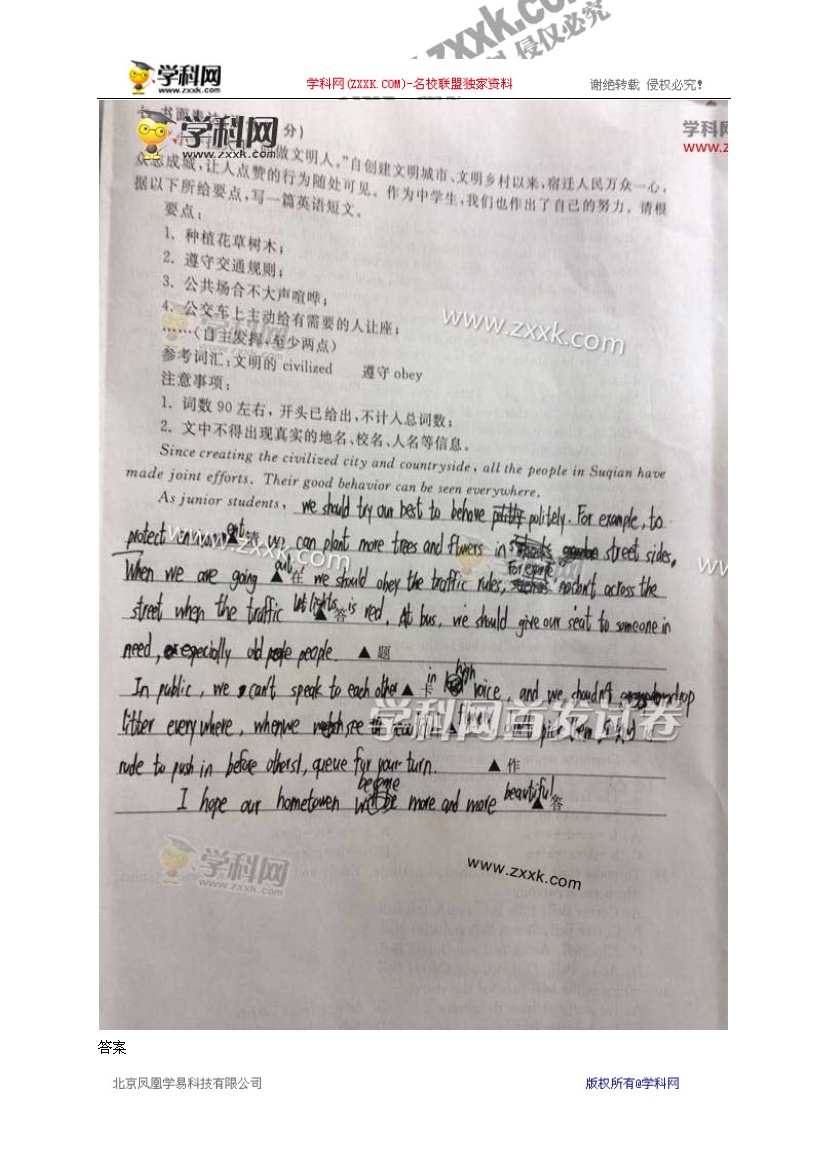 学科网
www.zxxk.com
学科网(ZXXK.COM)-名校联盟独家资料
谢绝转载 侵权必究!
书面表达
分)
做文明人。”自创建文明城市、文明乡村以来,宿迁人民万众一心,
众志成城,让人点赞的行为随处可见。作为中学生,我们也作出了自己的努力。请根
据以下所给要点,写一篇英语短文。
要点:
1. 种植花草树木;
2. 遵守交通规则;
3. 公共场合不大声喧哗;
4. 公交车上主动给有需要的人让座;
……(自主发挥,至少两点)
参考词汇:文明的 civilized 遵守 obey
注意事项:
1. 词数 90 左右,开头已给出,不计入总词数;
2. 文中不得出现真实的地名、校名、人名等信息。
Since creating the civilized city and countryside, all the people in Suqian have
made joint efforts. Their good behavior can be seen everywhere.
As junior students, we should try our best to behave politely. For example, to
protect ▲ 请 we can plant more trees and flowers in street sides.
When we are going out ▲ 在 we should obey the traffic rules, For example don't across the
street when the traffic lights ▲ 答 is red. At bus, we should give our seat to someone in
need, especially old people. ▲ 题
In public, we can't speak to each other ▲ 卡 in high voice, and we shoudn't drop
litter everywhere, when we see
rude to push in before others, queue for your turn. ▲ 作
I hope our hometowen become more and more beautiful ▲ 答
学科网首发试卷
www.zxxk.com
答案
北京凤凰学易科技有限公司
版权所有@学科网